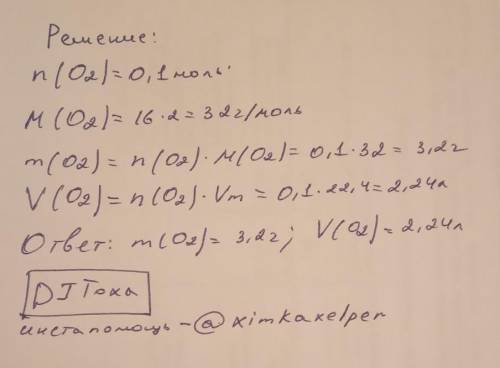 Решение:
n(O2)=0,1моль.
M(O2)=16·2=32г/моль
m(O2)=n(O2)·M(O2)=0,1·32=3,2г
V(O2)=n(O2)·Vm=0,1·22,4=2,24л
Ответ: m(O2)=3,2г; V(O2)=2,24л
DJ Тоха
инстапомощь-@ximkaxelper